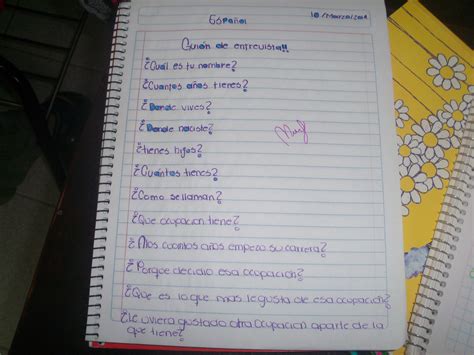 Español
Guión de entrevista!!
¿Cuál es tu nombre?
¿Cuantos años tienes?
¿Donde vives?
¿Donde naciste?
¿tienes hijos?
¿Cuántos tienes?
¿Como se llaman?
¿Que ocupacion tiene?
¿Alos cuantos años empezo su carrera?
¿Porque decidio esa ocupacion?
¿Que es lo que mas le gusta de esa ocupacion?
¿Le uviera gustado otra ocupacion aparte de la
que tiene?